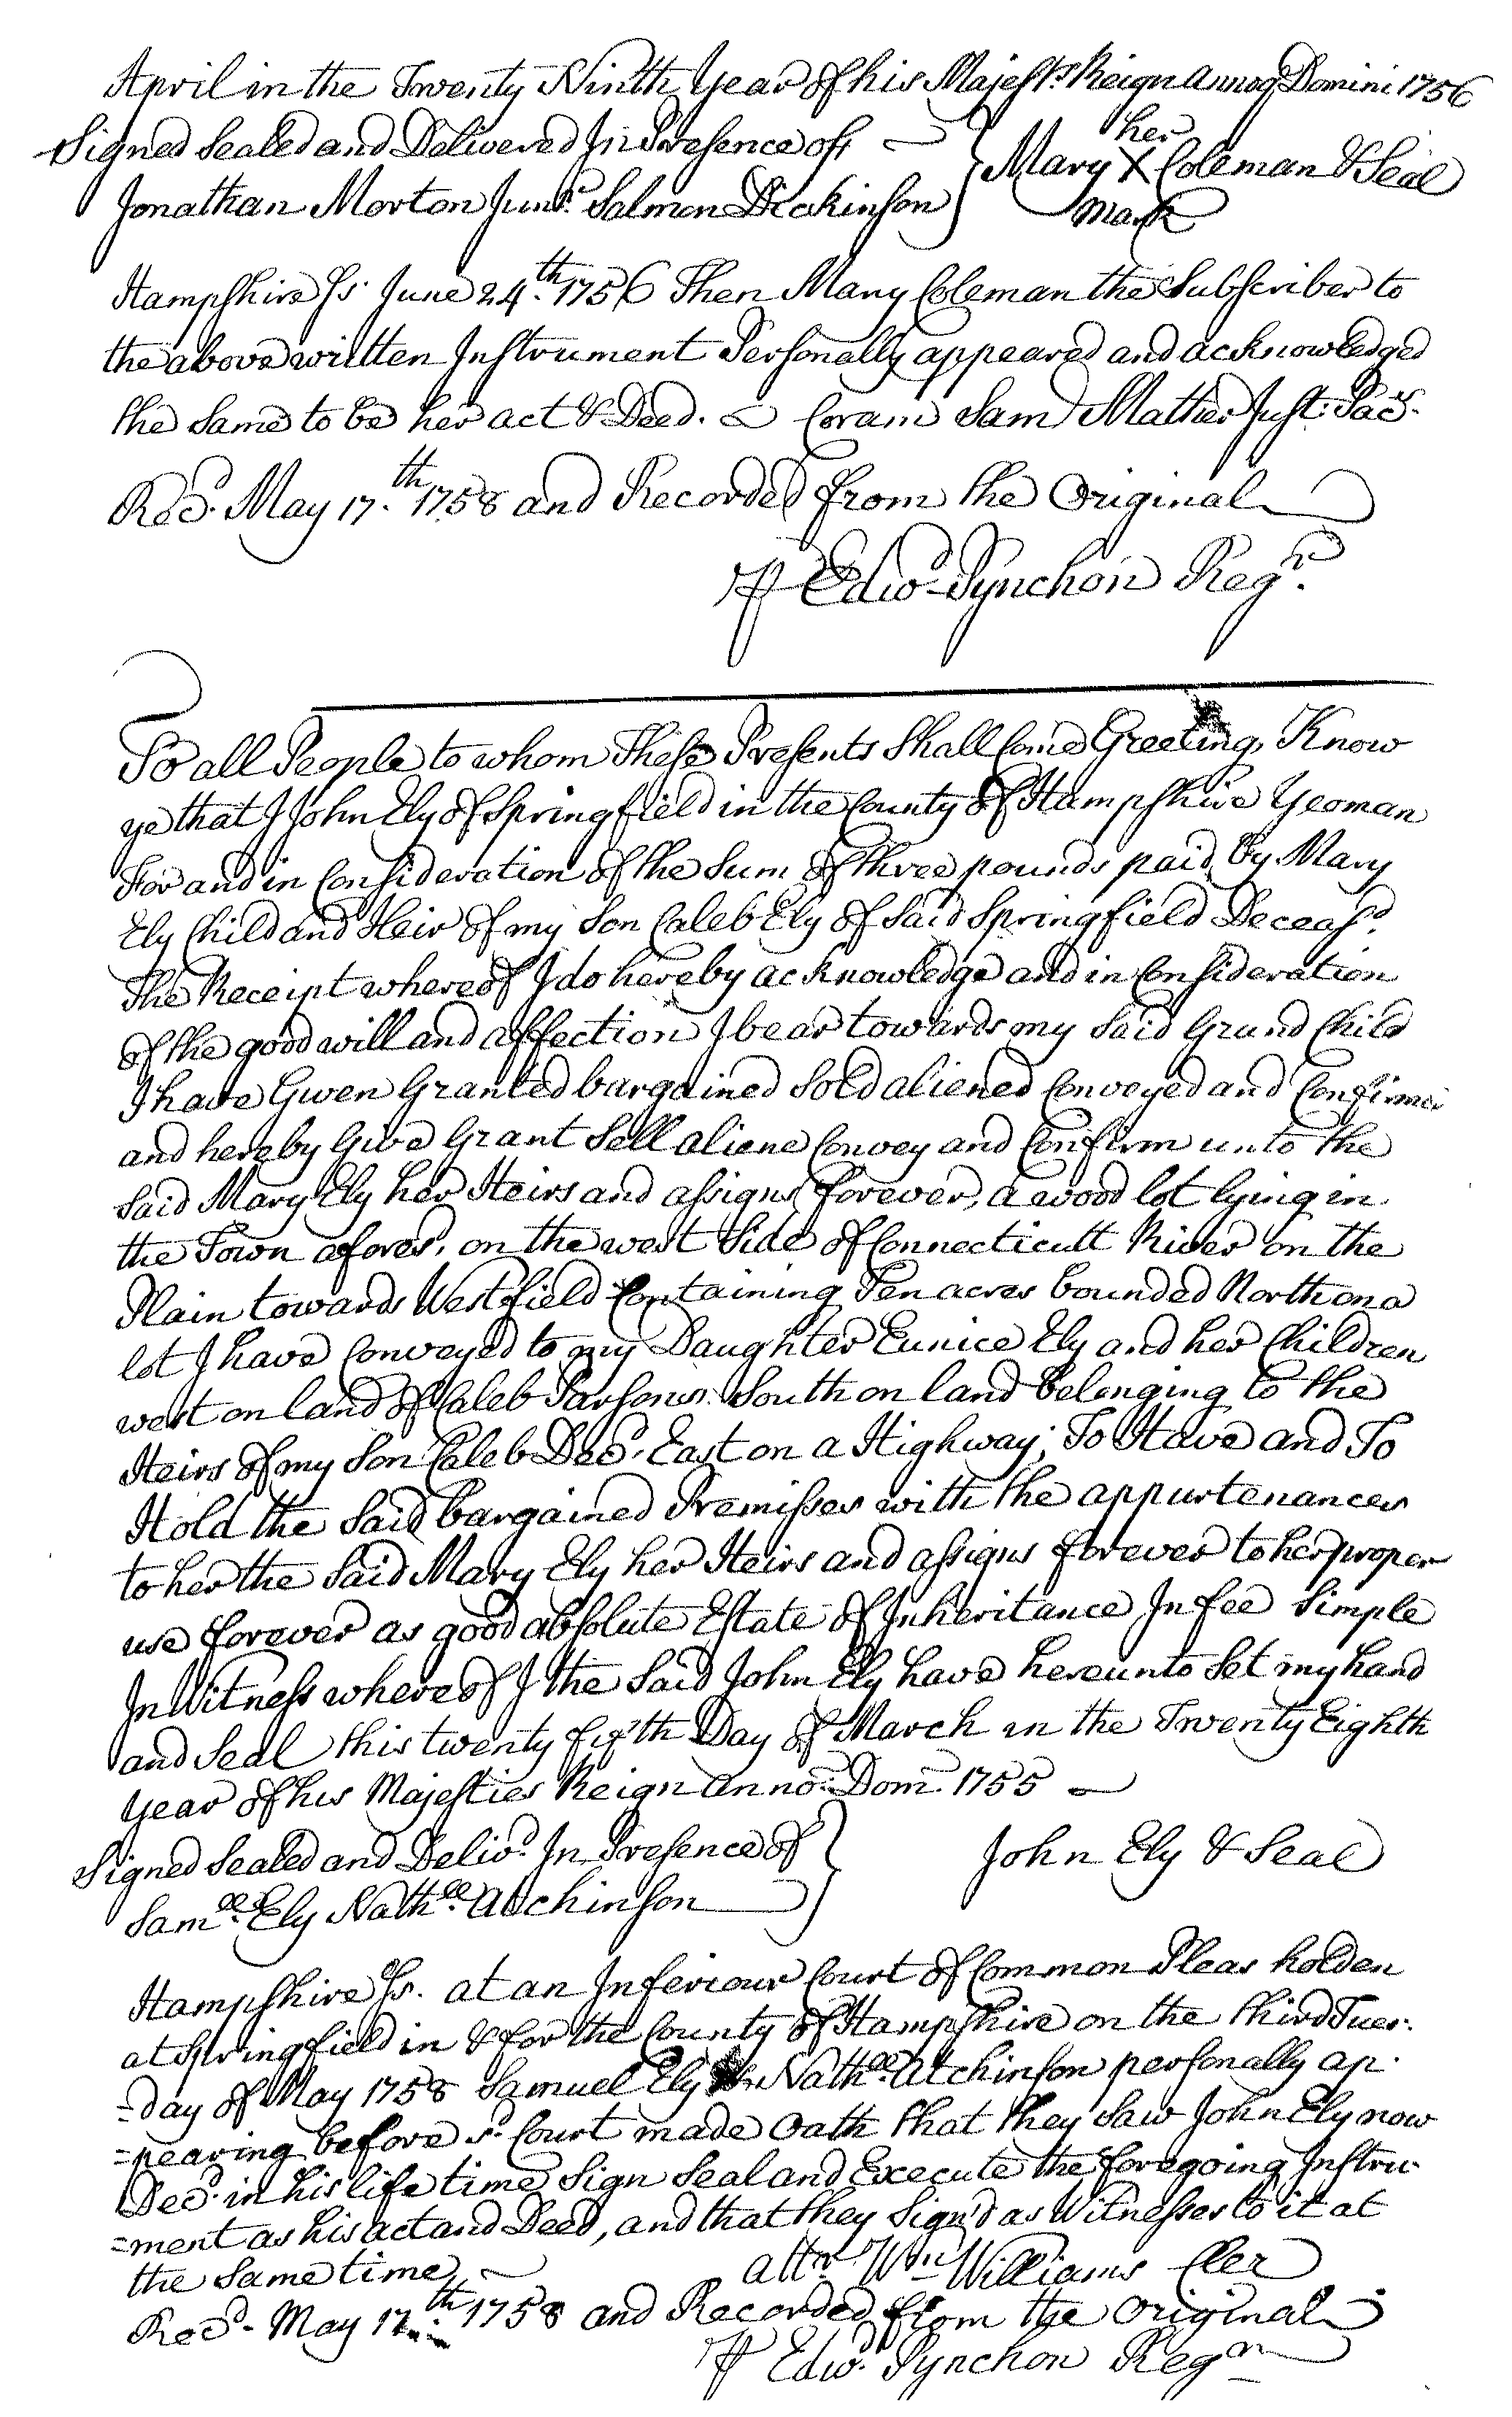 April in the Twenty Ninth Year of his Majestys Reign Annoq Domini 1756
Signed Sealed and Delivered In Presence of
Jonathan Morton Junr. Salmon Dickinson
her
Mary X Coleman & Seal
mark
Hampshire Ss. June 24th. 1756 Then Mary Coleman the Subscriber to
the above written Instrument Personally appeared and acknowledged
the Same to be her act & Deed. Coram Sam Mather Just. Pacs.
Recd. May 17th. 1758 and Recorded from the Original
Pr Edwd. Pynchon Regr.
To all People to whom These Presents Shall Come Greeting, Know
ye that I John Ely of Springfield in the County of Hampshire Yeoman
For and in Consideration of the Sum of three pounds paid by Mary
Ely Child and Heir of my Son Caleb Ely of Said Springfield Deceasd.
The Receipt whereof I do hereby acknowledge and in Consideration
of the good will and affection I bear towards my Said Grand Child
I have Given Granted bargained Sold aliened Conveyed and Confirmed
and hereby Give Grant Sell aliene Convey and Confirm unto the
Said Mary Ely her Heirs and assigns forever, a wood lot lying in
the Town aforesd. on the west Side of Connecticutt River on the
Plain towards Westfield Containing Ten acres bounded North on a
lot I have Conveyed to my Daughter Eunice Ely and her Children
west on land of Caleb Parsons. South on land belonging to the
Heirs of my Son Caleb Decd. East on a Highway; To Have and To
Hold the Said bargained Premisses with the appurtenances
to her the Said Mary Ely her Heirs and assigns forever to her proper
use forever as good absolute Estate of Inheritance In fee Simple
In Witness whereof I the Said John Ely have hereunto Set my hand
and Seal this twenty fifth Day of March in the Twenty Eighth
year of his Majesties Reign Anno. Dom. 1755
Signed Sealed and Delivd. In Presence of
Samll. Ely Nathll. Atchinson
John Ely & Seal
Hampshire Ss. at an Inferiour Court of Common Pleas holden
at Springfield in & for the County of Hampshire on the third Tues.
=day of May 1758 Samuel Ely Nathll. Atchinson personally ap.
=pearing before sd. Court made Oath that they Saw John Ely now
Decd. in his life time Sign Seal and Execute the foregoing Instru.
=ment as his act and Deed, and that they Sign'd as Witnesses to it at
the Same time Attr. Wm. Williams Cler
Recd. May 17th. 1758 and Recorded from the Original
Pr Edwd. Pynchon Regr